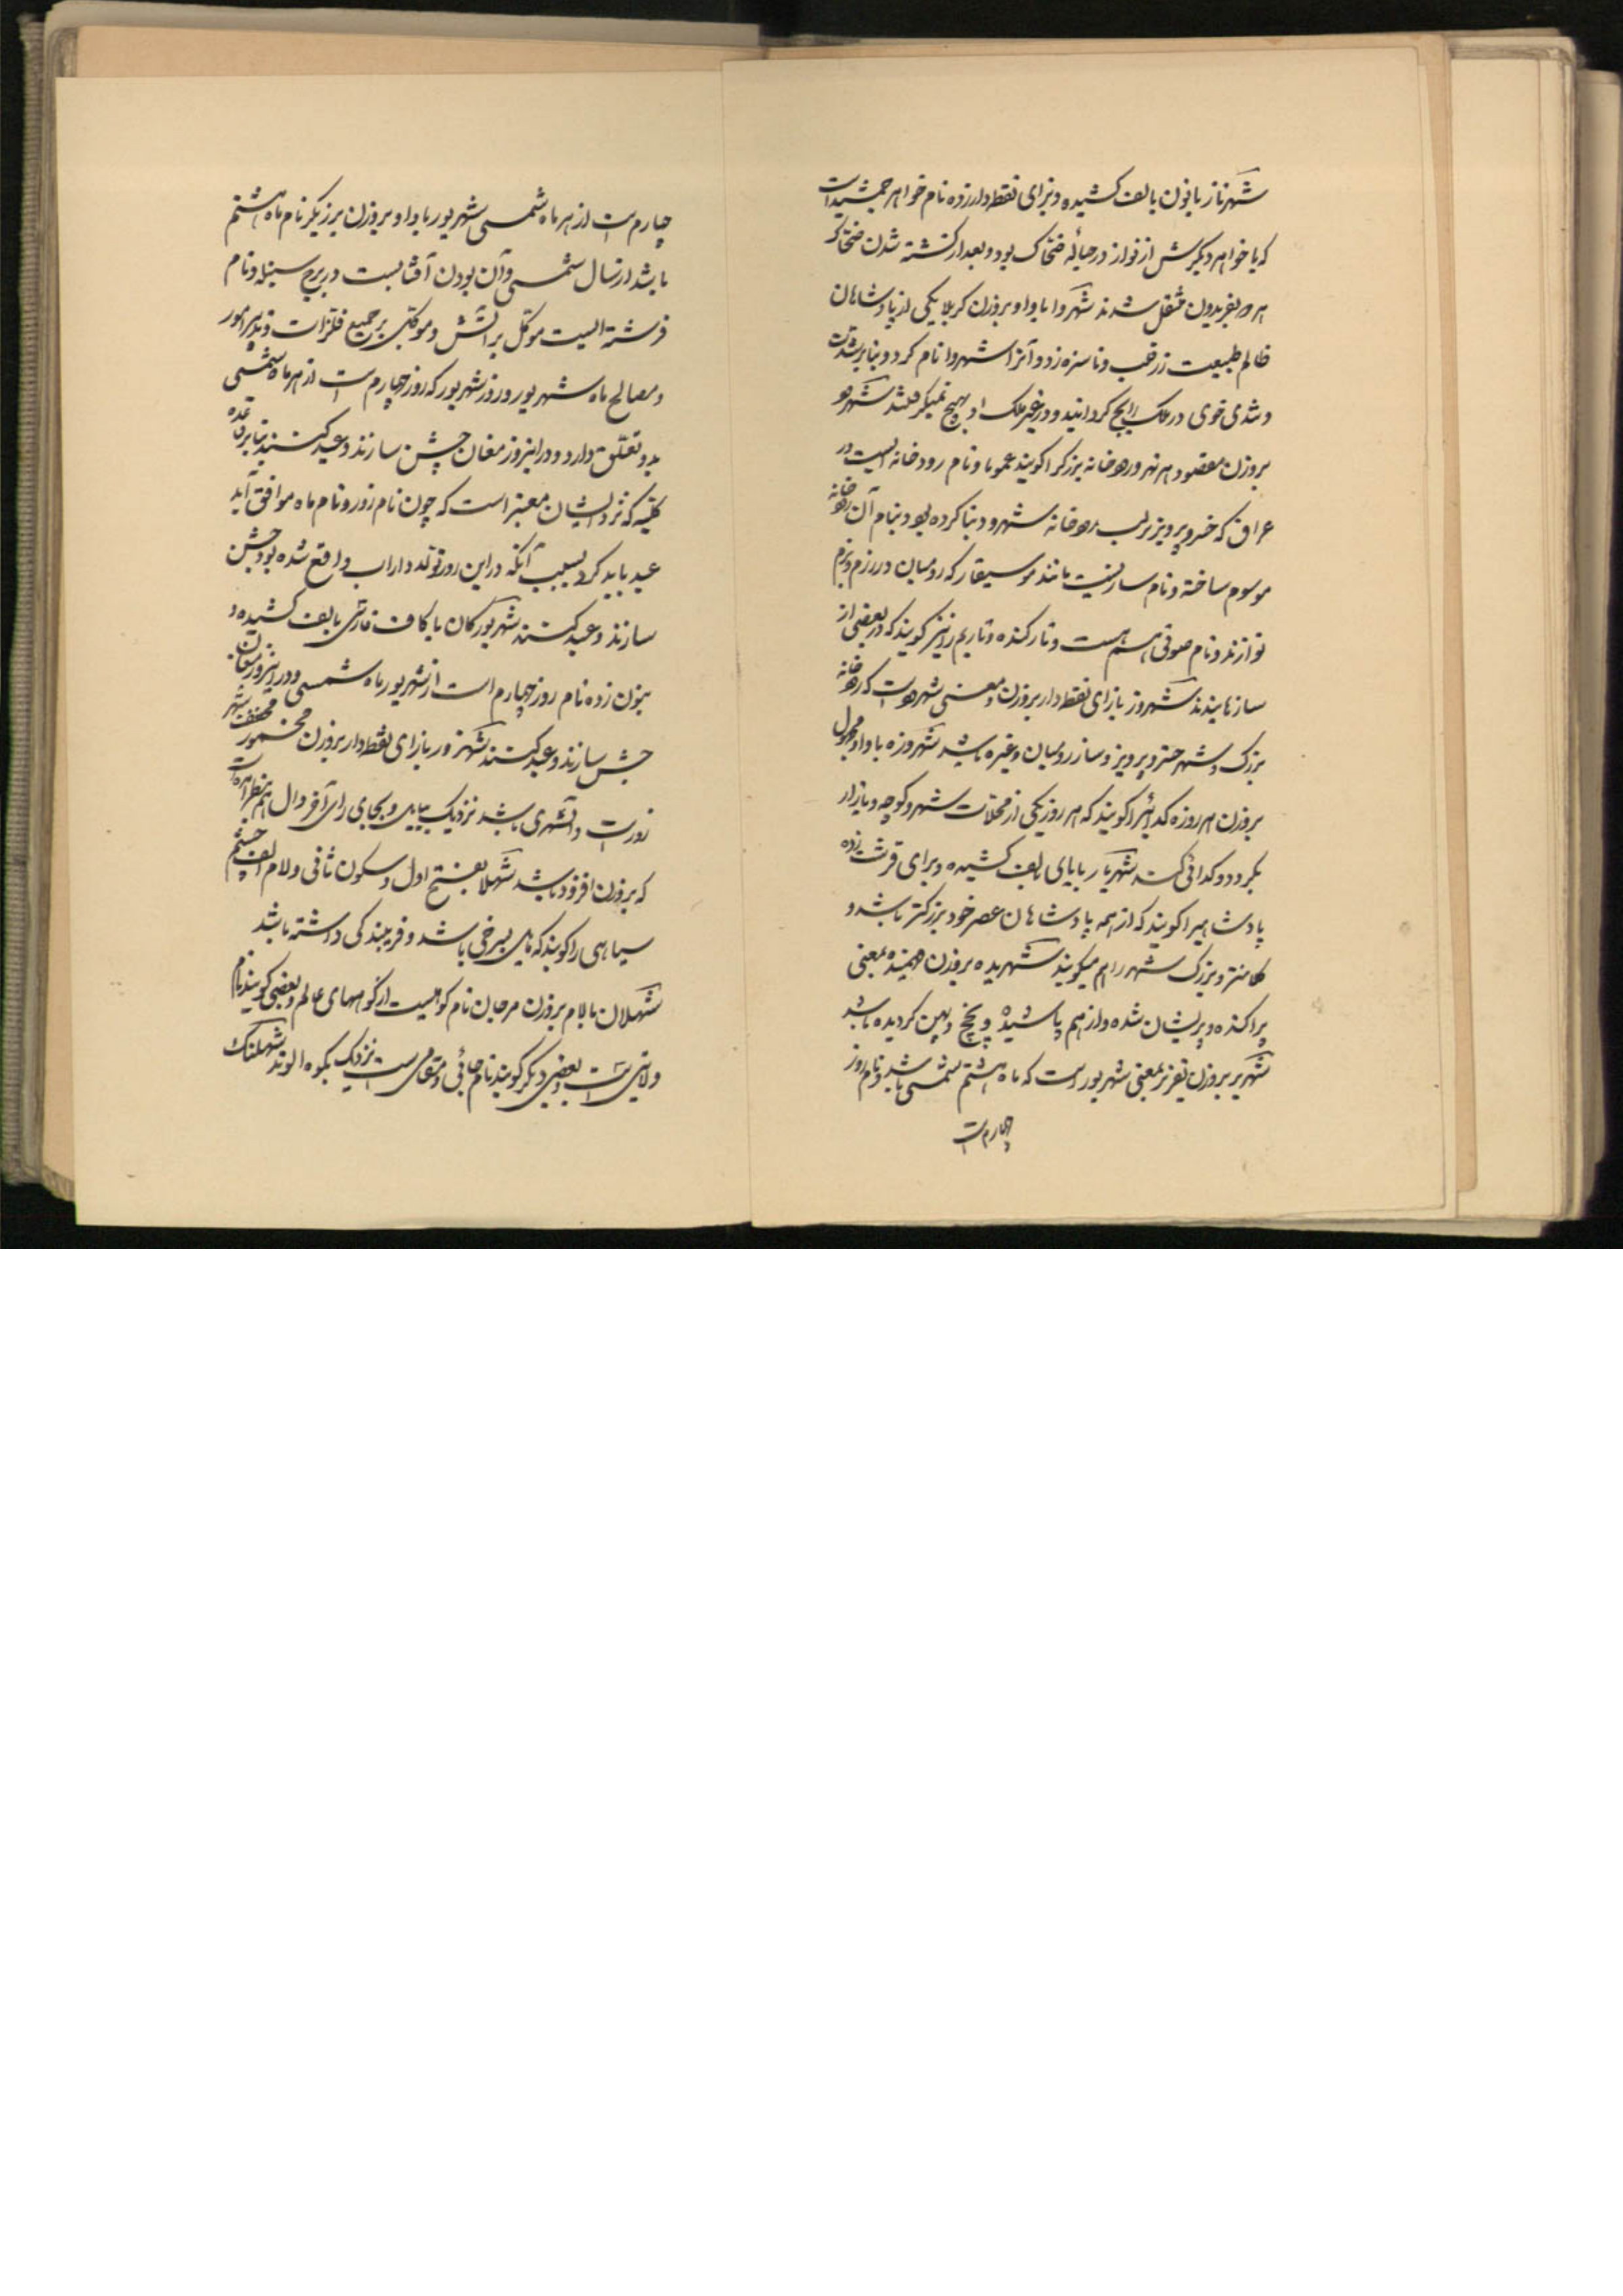 شهرناز با نون بالف کشیده و بزای نقطه دار زده نام خواهر جمشید است
که با خواهر دیگرش ارنواز در حباله ضحاک بود و بعد از کشته شدن ضحاک
هر دو بفریدون منتقل شدند شهروا با واو بروزن کربلا یکی از پادشاهان
ظالم طبیعت زر قلب و ناسره زد و آنرا شهروا نام کرد و بنابر شدت
و تندی خوی در ملک رایج گردانید و در غیر ملک او بهیچ نمیگرفتند شهرود
بروزن مقصود هر نهر و رودخانه بزرگ را گویند عموما و نام رودخانه ایست در
عراق که خسرو پرویز بر لب رودخانه شهرود بنا کرده بود و بنام آن رودخانه
موسوم ساخته و نام سازیست مانند موسیقار که رومیان در رزم و بزم
نوازند و نام صوتی هم هست و تار کنده و تار بم را نیز گویند که در بعضی از
سازها بندند شهروز با زای نقطه دار بروزن و معنی شهرود است که رودخانه
بزرگ و شهر خسرو پرویز و ساز رومیان و غیره باشد شهروزه با واو مجهول
بروزن هر روزه گدائی را گویند که هر روز یکی از محلات شهر و کوچه و بازار
بگردد و گدائی کند شهریار با یای بالف کشیده و برای قرشت زده
پادشاهی را گویند که از همه پادشاهان عصر خود بزرگتر باشد و
کلانتر و بزرگ شهر را هم میگویند شهریده بروزن فهمیده بمعنی
پراکنده و پریشان شده و از هم پاشیده و پخچ و پهن گردیده باشد
شهریر بروزن تعزیر بمعنی شهریور است که ماه هشتم شمسی باشد و نام روز
چهارم است
چهارم است از هر ماه شمسی شهریور با واو بروزن برزیگر نام ماه هشتم
باشد از سال شمسی و آن بودن آفتابست در برج سنبله و نام
فرشته ایست موکل بر آتش و موکل بر جمیع فلزات و تدبیر امور
و مصالح ماه شهریور و روز شهریور که روز چهارم است از هر ماه شمسی
بدو تعلق دارد و در اینروز مغان جشن سازند و عید کنند بنابر قاعده
کلیه که نزد ایشان معتبر است که چون نام روز و نام ماه موافق آید
عید باید کرد بسبب آنکه در این روز تولد داراب واقع شده بود جشن
سازند و عید کنند شهریورگان با کاف فارسی بالف کشیده و
بنون زده نام روز چهارم است از شهریور ماه شمسی و در اینروز مغان
جشن سازند و عید کنند شهرزور با زای نقطه دار بروزن مخمور مخفف شهر
زور است و آن شهری باشد نزدیک ببابل و بجای رای آخر دال هم بنظر آمده است
که بروزن افزود باشد شهلا بفتح اول و سکون ثانی و لام الف چشم
سیاهی را گویند که مایل بسرخی باشد و فریبندگی داشته باشد
شهلان با لام بروزن مرجان نام کوهیست از کوههای عالم و بعضی گویند نام
ولایتی است و بعضی دیگر گویند نام جائی و مقامی است نزدیک بکوه الوند شهلنگ